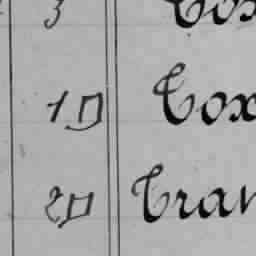 3 Cox
10 Cox
20 Cran